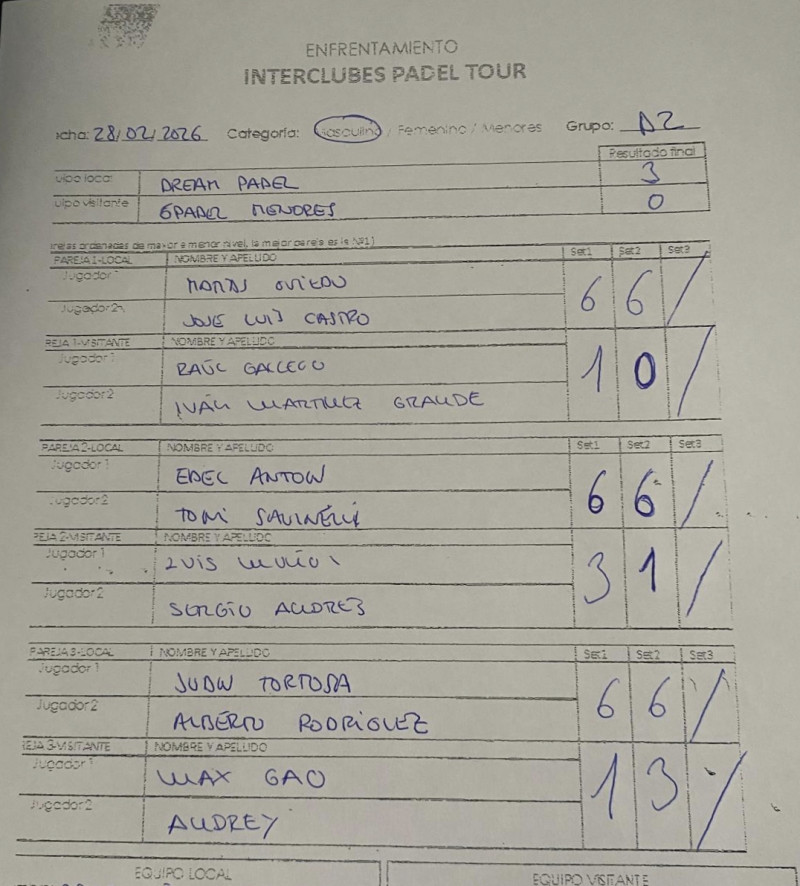 ENFRENTAMIENTO
INTERCLUBES PADEL TOUR
echa: 28/02/2026 Categoría: Masculino / Femenino / Menores Grupo: A2
Resultado final
uipo local DREAM PADEL 3
uipo visitante 6PADEL MENORES 0
arejas ordenadas de mayor a menor nivel, la mejor pareja es la Nº1)
PAREJA 1-LOCAL NOMBRE Y APELLIDO Set1 Set2 Set3
Jugador 1 OVIEDO
Jugador 2 JOSE LUIS CASTRO
6 6 /
REJA 1-VISITANTE NOMBRE Y APELLIDO
Jugador 1 RAÚL GALLEGO
Jugador 2 IVÁN MARTINEZ GRANDE
1 0 /
PAREJA 2-LOCAL NOMBRE Y APELLIDO Set1 Set2 Set3
Jugador 1 EDEL ANTON
Jugador 2 TOMI SAVINELLI
6 6 /
REJA 2-VISITANTE NOMBRE Y APELLIDO
Jugador 1 LUIS
Jugador 2 SERGIO ANDRES
3 1 /
PAREJA 3-LOCAL NOMBRE Y APELLIDO Set1 Set2 Set3
Jugador 1 JUAN TORTOSA
Jugador 2 ALBERTO RODRIGUEZ
6 6 /
REJA 3-VISITANTE NOMBRE Y APELLIDO
Jugador 1 MAX GAO
Jugador 2 ANDREY
1 3 /
EQUIPO LOCAL EQUIPO VISITANTE